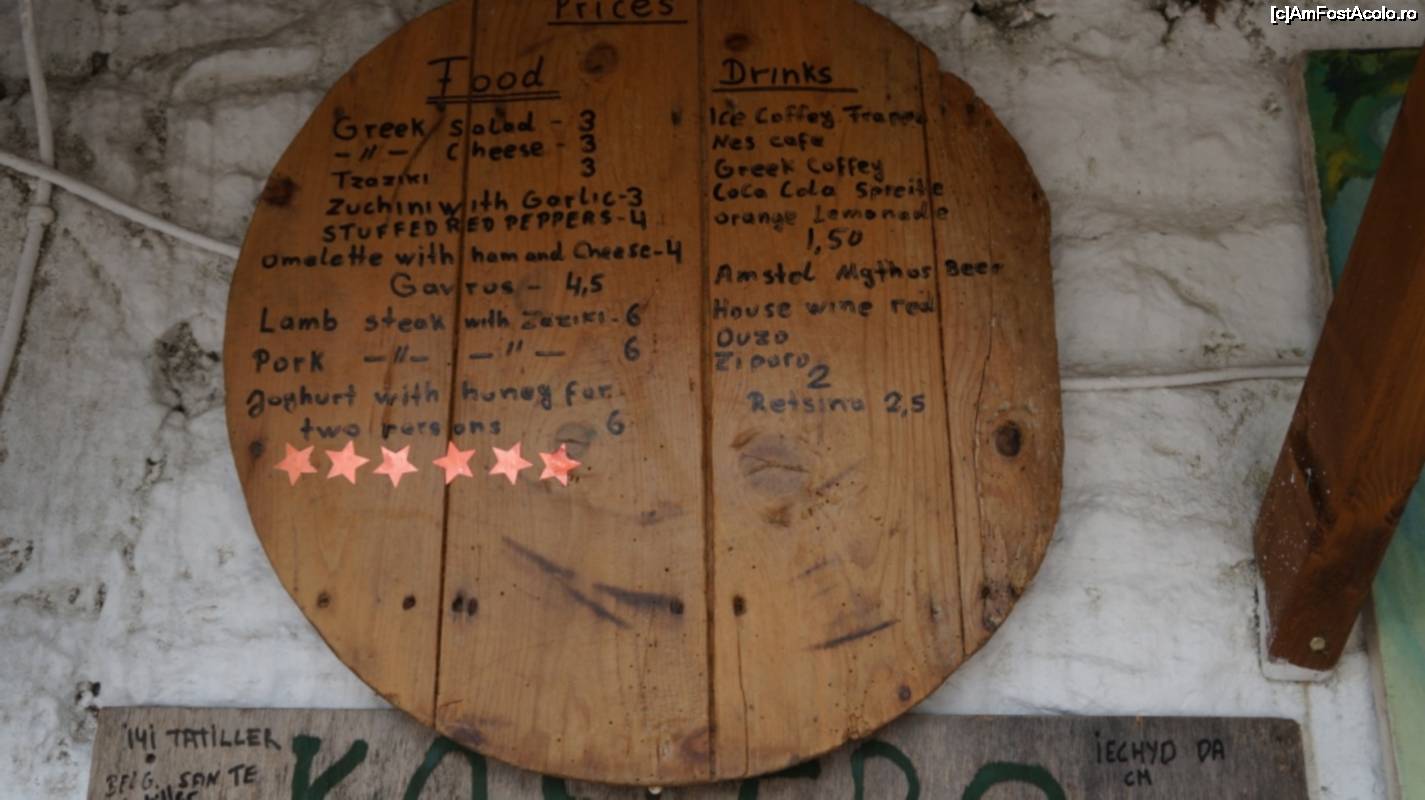 [c]AmFostAcolo.ro
Prices
Food
Greek Salad - 3
-"- Cheese - 3
Tzaziki 3
Zuchini with Garlic-3
STUFFED RED PEPPERS-4
omelette with ham and Cheese-4
Gavros - 4,5
Lamb steak with Zaziki-6
Pork -"- -"- 6
Joghurt with honey for
two persons 6
Drinks
Ice Coffey Frape
Nes cafe
Greek Coffey
Coca Cola Spreite
orange Lemonade
1,50
Amstel Mythos Beer
House wine red
Ouzo
Ziporo
2
Retsina 2,5
iyi TATiLLER
BELG. SAN TE
iECHYD DA
CM